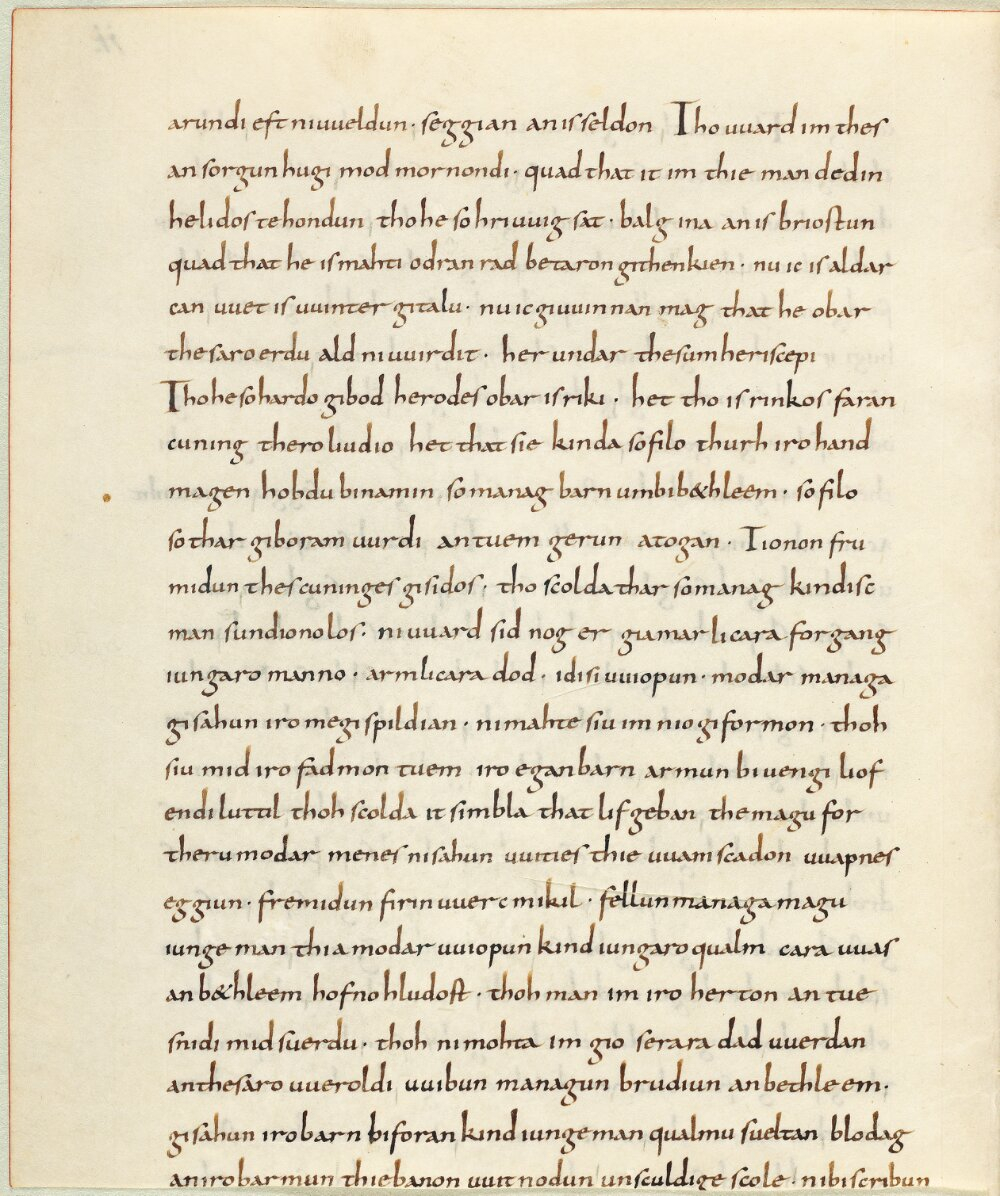 arundi eft niuueldun· seggian an is seldon Tho uuard im thes
an sorgun hugi mod mornondi· quad that it im thie man dedin
helidos te hondun tho he so hriuuig sat· balg ina an is briostun
quad that he is mahti odran rad betaron githenkien· nu ic is aldar
can uuet is uuinter gitalu· nu ic giuuinnan mag that he obar
thesaro erdu ald niuuirdit· her undar thesum heriscepi
Tho he so hardo gibod herodes obar is riki· het tho is rinkos faran
cuning thero liudio het that sie kinda so filo thurh iro hand
magen hobdu binamin so manag barn umbi b&hleem· so filo
so thar giboram uurdi an tuem gerun atogan· Tionon fru
midun thes cuninges gisidos· tho scolda thar so manag kindisc
man sundiono los· ni uuard sid nog er giamarlicara forgang
iungaro manno· armlicara dod· idisi uuiopun· modar managa
gisahun iro megi spildian· ni mahte siu im nio giformon· thoh
siu mid iro fadmon tuem iro egan barn armun biuengi liof
endi luttil thoh scolda it simbla that lif geban the magu for
theru modar menes ni sahun uuities thie uuam scadon uuapnes
eggiun· fremidun firinuuerc mikil· fellun managa magu
iunge man thia modar uuiopun kind iungaro qualm cara uuas
an b&hleem hofno hludost· thoh man im iro herton an tue
snidi mid suerdu· thoh ni mohta im gio serara dad uuerdan
an thesaro uueroldi uuibun managun brudiun an bethleem·
gisahun iro barn biforan kind iunge man qualmu sueltan blodag
an iro barmun thie banon uuitnodun unsculdige scole· ni biscribun